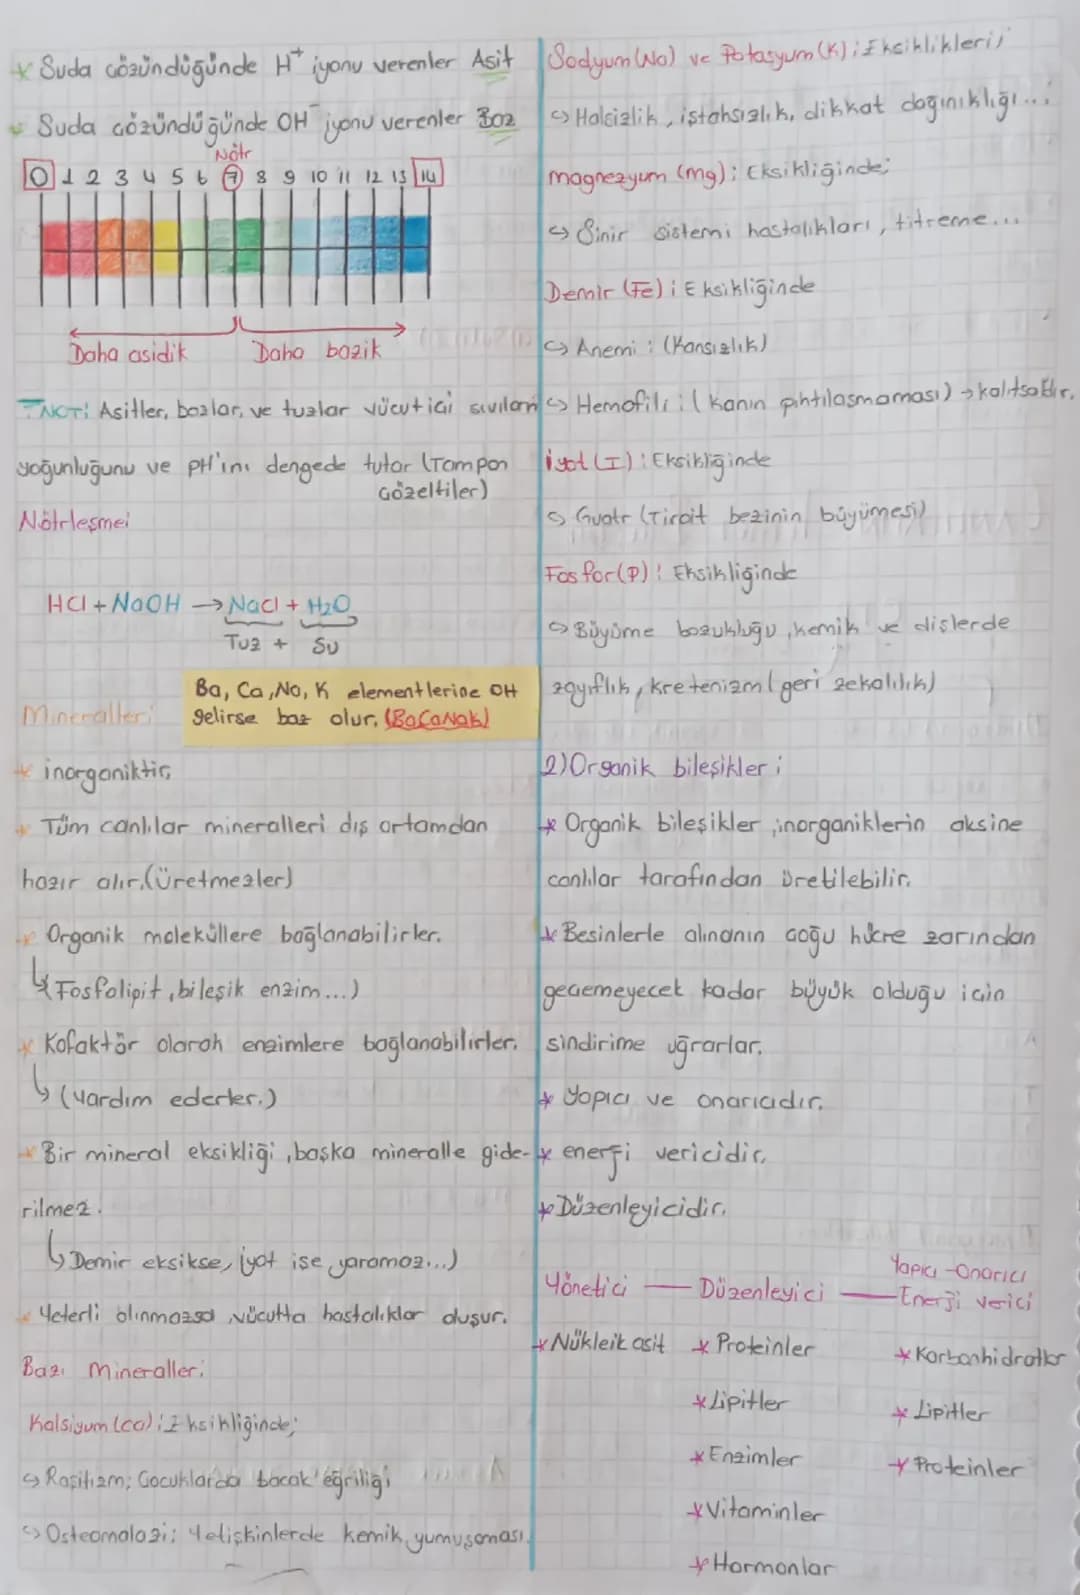 * Suda çözündüğünde H⁺ iyonu verenler Asit
* Suda çözündüğünde OH⁻ iyonu verenler Baz
Nötr
0 1 2 3 4 5 6 7 8 9 10 11 12 13 14
Daha asidik Daha bazik
NOT: Asitler, bazlar, ve tuzlar vücut içi sıvıların
yoğunluğunu ve pH'ını dengede tutar (Tampon
Çözeltiler)
Nötrleşme;
HCl + NaOH → NaCl + H₂O
Tuz + Su
Ba, Ca, Na, K elementlerine OH
gelirse baz olur. (BaCaNaK)
Mineraller;
* inorganiktir.
* Tüm canlılar mineralleri dış ortamdan
hazır alır. (üretmezler)
* Organik moleküllere bağlanabilirler.
↳ (Fosfolipit, bileşik enzim...)
* Kofaktör olarak enzimlere bağlanabilirler.
↳ (Yardım ederler.)
* Bir mineral eksikliği, başka mineralle gide-
rilmez.
↳ Demir eksikse, iyot işe yaramaz...)
* Yeterli alınmazsa vücutta hastalıklar oluşur.
Bazı Mineraller;
Kalsiyum (Ca); Eksikliğinde;
↪ Raşitizm; Çocuklarda bacak eğriliği
↪ Osteomalazi; Yetişkinlerde kemik yumuşaması.
Sodyum (Na) ve Potasyum (K); Eksiklikleri;
↪ Halsizlik, iştahsızlık, dikkat dağınıklığı...
magnezyum (mg); Eksikliğinde;
↪ Sinir sistemi hastalıkları, titreme...
Demir (Fe); Eksikliğinde
↪ Anemi: (Kansızlık)
↪ Hemofili: (Kanın pıhtılaşmaması) → kalıtsaldır.
İyot (I): Eksikliğinde
↪ Guatr (Tiroit bezinin büyümesi)
Fosfor (P): Eksikliğinde
↪ Büyüme bozukluğu, kemik ve dişlerde
zayıflık, kretenizm (geri zekalılık)
2) Organik bileşikler;
* Organik bileşikler, inorganiklerin aksine
canlılar tarafından üretilebilir.
* Besinlerle alınanın çoğu hücre zarından
geçemeyecek kadar büyük olduğu için
sindirime uğrarlar.
* Yapıcı ve onarıcıdır.
* enerji vericidir.
* Düzenleyicidir.
Yapıcı-Onarıcı
Yönetici — Düzenleyici — Enerji verici
* Nükleik asit * Proteinler * Karbonhidratlar
* Lipitler * Lipitler
* Enzimler * Proteinler
* Vitaminler
* Hormonlar